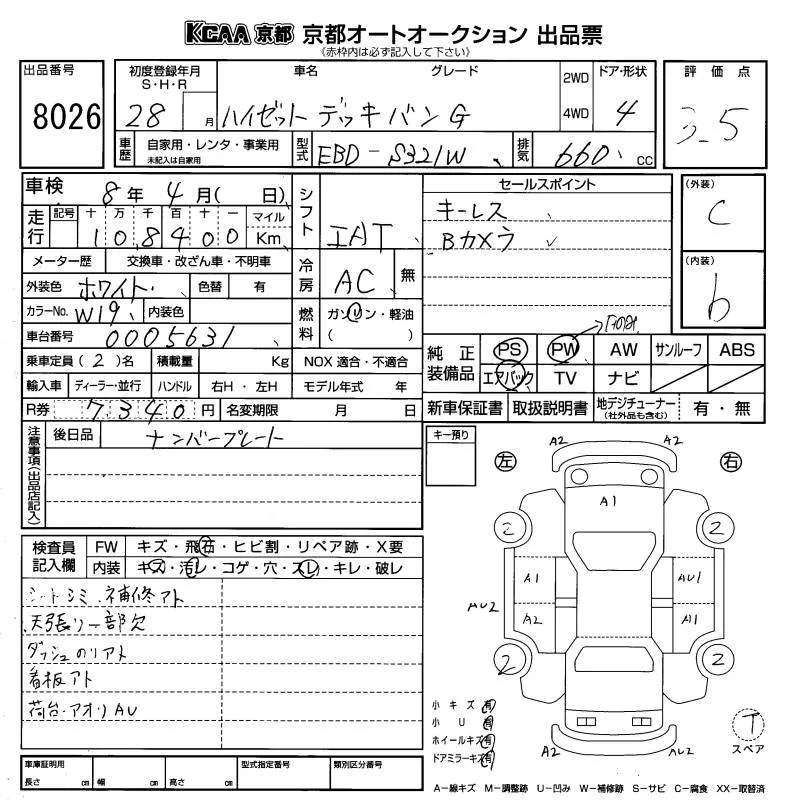 KCAA 京都 京都オートオークション 出品票
(赤枠内は必ず記入して下さい)
出品番号
8026
初度登録年月
S・H・R
28 月
車名
グレード
ハイゼット デッキバン G
2WD
4WD
ドア・形状
4
評価点
3.5
車歴
自家用・レンタ・事業用
未記入は自家用
型式
EBD-S321W
排気
660 cc
車検
8年 4月( 日)
シフト
IAT
セールスポイント
キーレス
Bカメラ
(外装)
C
(内装)
b
走行
記号 十 万 千 百 十 一 マイル
1 0 8 4 0 0 Km
メーター歴 交換車・改ざん車・不明車
冷房
AC 無
外装色 ホワイト 色替 有
カラーNo. W19 内装色
燃料
ガソリン・軽油
( )
車台番号 0005631
乗車定員 (2)名 積載量 Kg NOX 適合・不適合
輸入車 ディーラー・並行 ハンドル 右H・左H モデル年式 年
R券 7340円 名変期限 月 日
純正装備品
PS PW AW サンルーフ ABS
エアバック TV ナビ
新車保証書 取扱説明書 地デジチューナー(社外品も含む) 有・無
注意事項(出品店記入)
後日品 ナンバープレート
キー預り
検査員記入欄
FW キズ・飛石・ヒビ割・リペア跡・X要
内装 キズ・汚レ・コゲ・穴・スレ・キレ・破レ
シートシミ、補修アト
天張リ一部欠
ダッシュのリアト
看板アト
荷台・アオリAU
A2 A2
左 右
A1
2 2
A1 AU1
AU2
A2 A1
2 2
A2 AU2
小キズ 有
小U 有
ホイールキズ 有
ドアミラーキズ 有
T
スペア
車庫証明用
長さ cm 幅 cm 高さ cm
型式指定番号
類別区分番号
A-線キズ M-調整跡 U-凹み W-補修跡 S-サビ C-腐食 XX-取替済